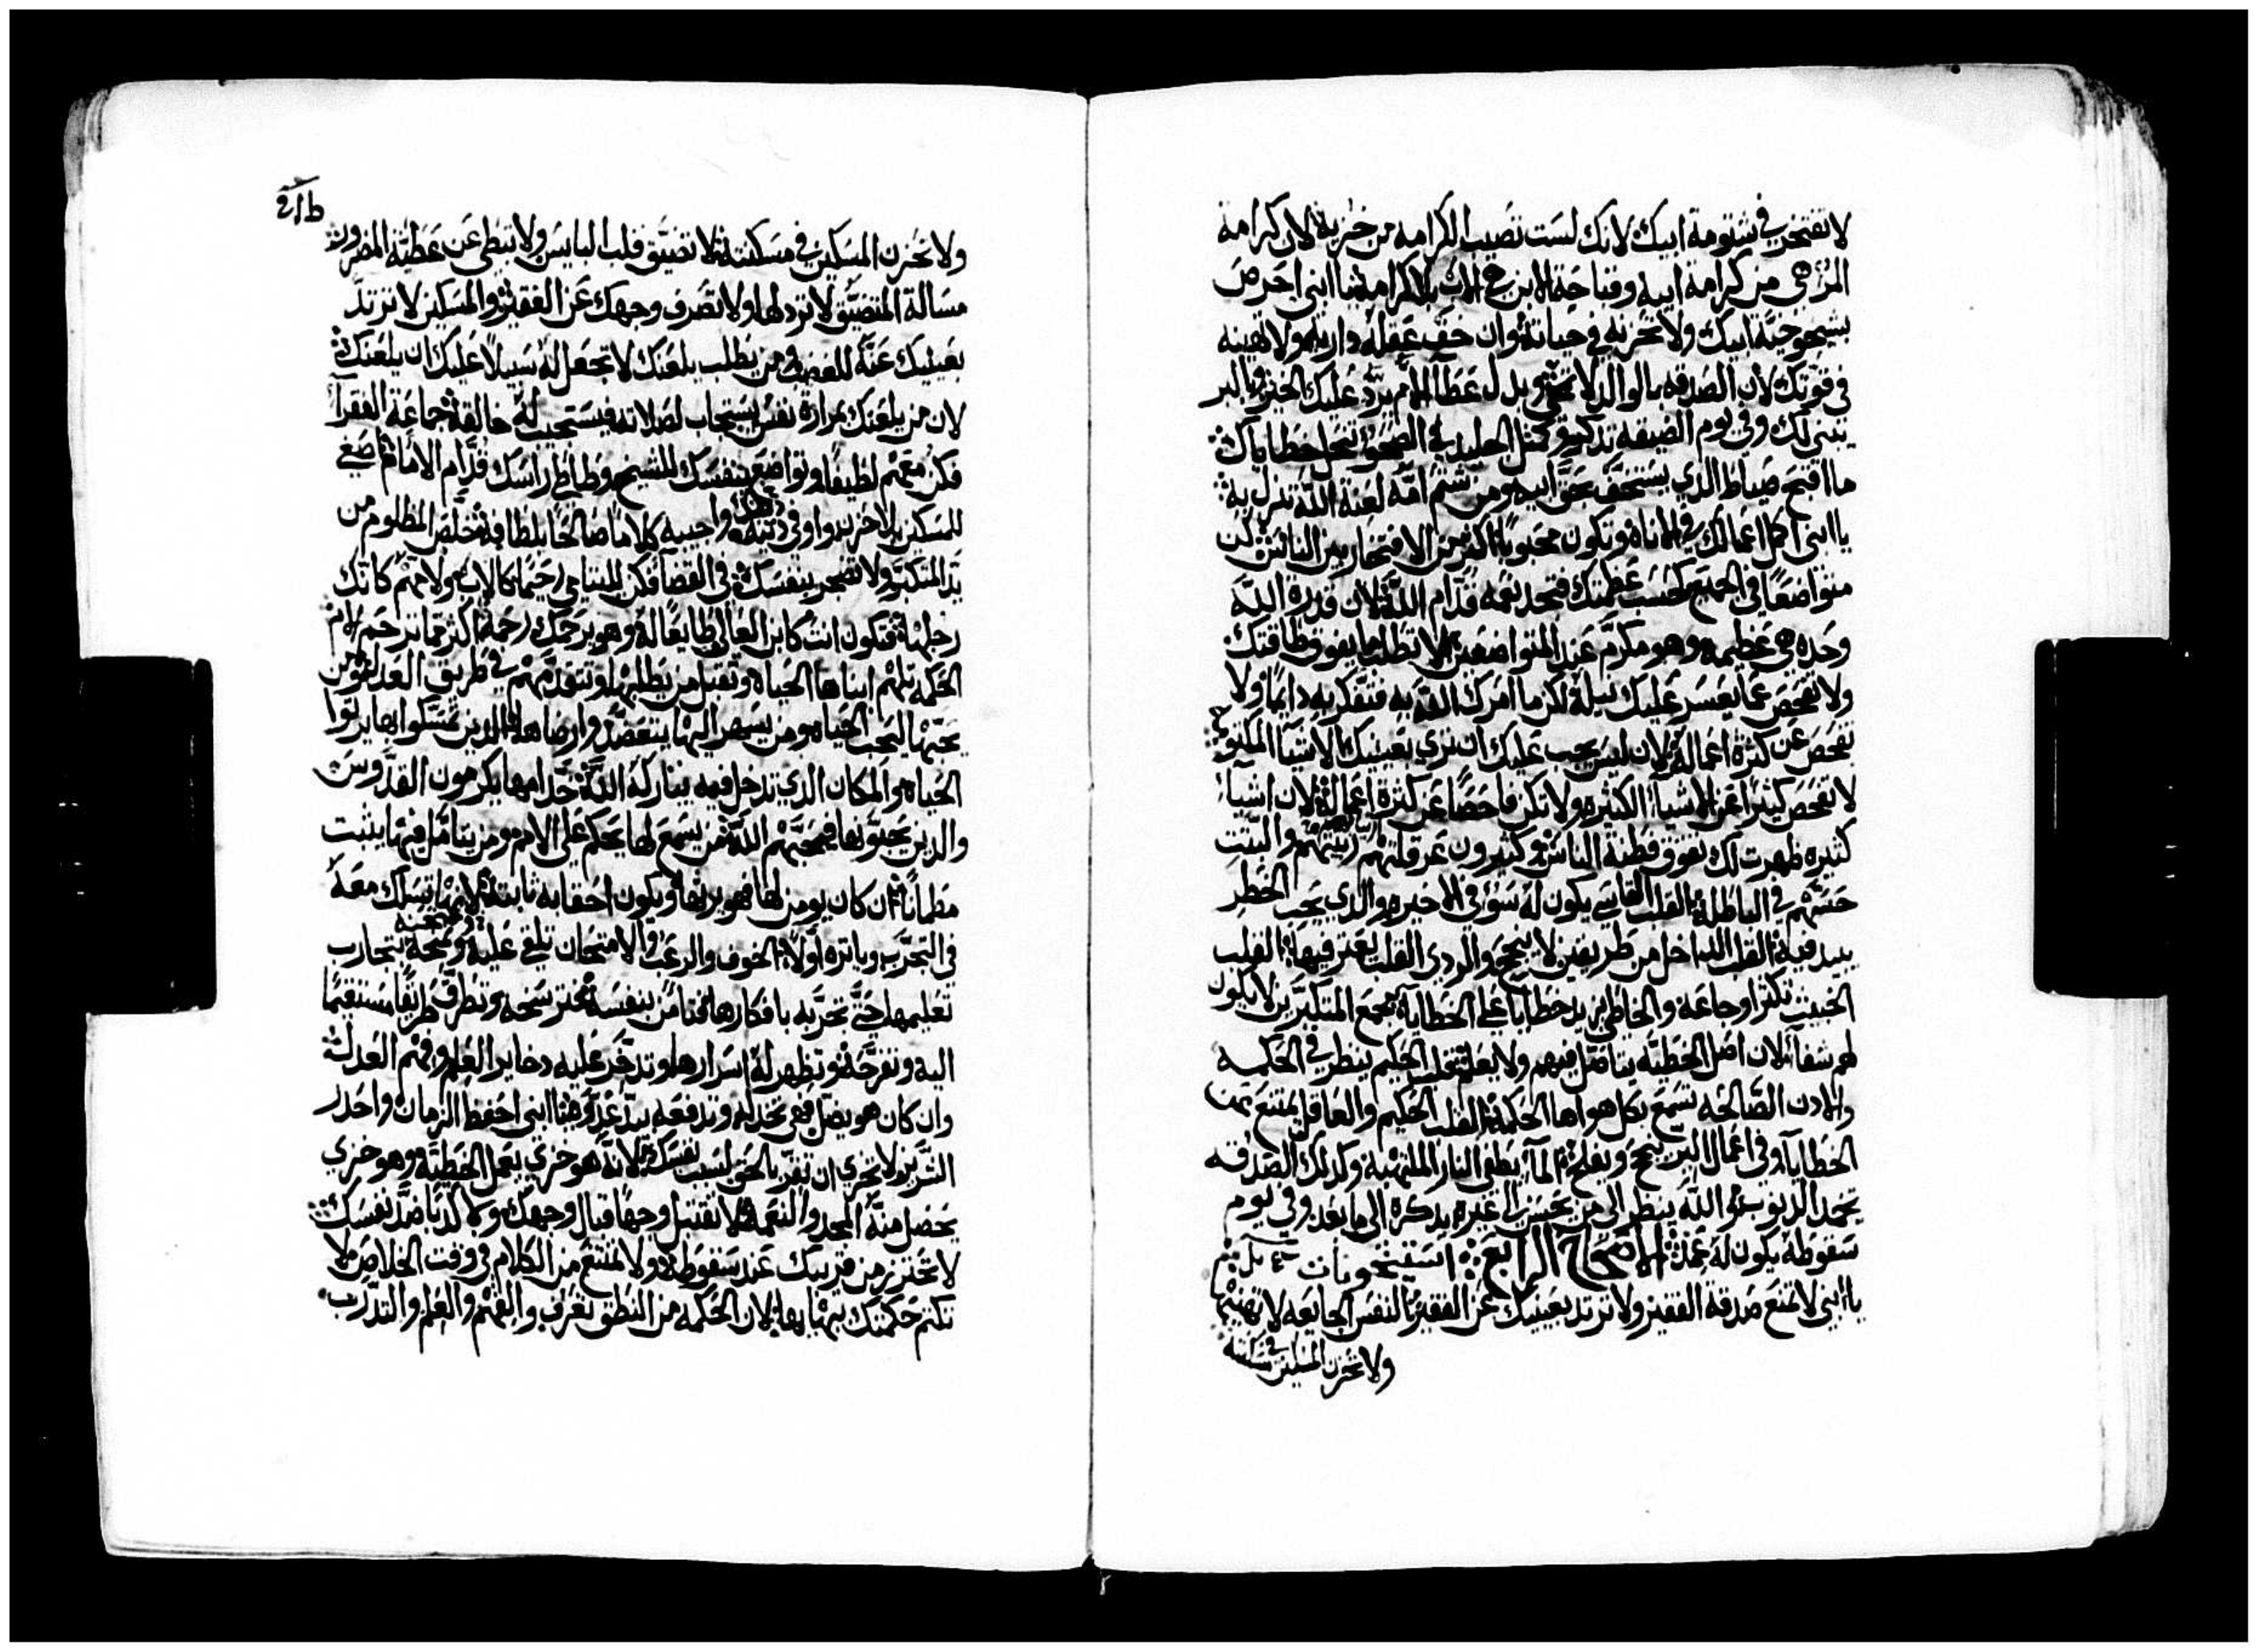 لا تفتخر في شتومة ابيك لانك لست تصيب الكرامه من خزية لان كرامة
المرء هي من كرامة ابيه وقباحة الابن هي الاب بلا كرامة يا ابني احرص
بشيخوخية ابيك ولا تحزنه في حياته وان خف عقله داريه ولا تهينه
في قوتك لان الصدقه بالوالد لا تنحي وبدل عطآ الام يرد عليك الخير وبالبر
يبني لك وفي يوم الضيقه تذكر ومثل الجليد في الصحو تنحل خطاياك
ما اقبح صياط الذي يستخف بحق ابيه ومن شتم امه لعنة الله تنزل به
يا ابني اكمل اعمالك في الاناة وتكون محبوبا اكثر من الافتخار بين الناس كن
متواضعا في الجميع كحسب عظمتك فتجد نعمه قدام الله لان قدرة الله
وحده هي عظيمه وهو مكرم عند المتواضعين لا تطلب ما يفوق طاقتك
ولا تفحص عما يعسر عليك نيله لكن ما امرك الله به فتفكر به دايما ولا
تفحص عن كثرة اعماله لان ليس يجب عليك ان تري بعينيك الاشيآ المكتومه
لا تفحص كثيرا عن الاشيآ الكثيره ولا تكن فاحصا عن كثرة اعماله لان اشيآ
كثيره ظهرت لك تفوق فطنة الناس وكثيرون عرقلتهم زيبتهم والبتت
حسهم في الباطل القلب القاسي يكون له سوء في الاخير والذي يحب الخطر
يبيد فيه القلب الداخل من طريقين لا ينجح والردي القلب يعثر فيها القلب
الخبيث تكثر اوجاعه والخاطي يزيد خطايا علي الخطاياة مجمع المتكبرين لا يكون
لهم شفآ لان اصل الخطيه يتاصل فيهم ولا يعلم قلب الحكيم ينظر في الحكمه
والادن الصالحه تسمع بكل هواها الحكمة القلب الحكيم والعاقل يمتنع من
الخطايا وفي اعمال البر ينجح ويفلح المآ يطفي النار الملتهبه وكذلك الصدقه
تخمد الذنوب والله ينظر الي من يحسن الي غيره يذكره الي ما بعد وفي يوم
سقوطه يكون له عمدة الاصحاح الرابع استيخويات
يا ابني لا تمنع صدقة الفقير ولا ترتد بعينيك عن الفقير النفس الجايعه لا تهينها
ولا تحزن المسكين في مسكنته
ولا تحزن المسكين في مسكنته لا تضيق قلب البايس ولا تبطي عن عطية المضرور
مسالة المتضيق لا تردلها ولا تصرف وجهك عن الفقير والمسكين لا ترتد
بعينيك عنه للغضب من يطلب يلعنك لا تجعل له سبيلا عليك ان يلعنك
لان من يلعنك بمرارة نفس يستجاب لصلاته فيستجيب له خالقه جماعة الفقرآ
فكن معهم لطيفا وتواضع بنفسك للشيخ وطاطي راسك قدام الاماما صغي
للمسكين بلا حزن واوفي دينك واجيبه كلاما صالحا بلطافة خلص المظلوم من
يد المتكبر ولا تضجر بنفسك في القضآ فكن لليتامي رحيما كالاب ولامهم كانك
رجلها فتكون انت كابن العالي طايعا له وهو يرحمك رحمة اكثر مما ترحم الام
الحكمه تلهم ابناها الحياة وتقبل من يطلبها وتتقدمهم في طريق العدل ومن
يحبها ليحب الحياه ومن يسهر اليها يتعضد وارضاها الذين تمسكوا بها يرتوا
الحياه والمكان الذي تدخل فيه يباركه الله خدامها يكرمون القدوس
والذين يحبونها فيحبهم الله من يسمع لها يحكم علي الامم ومن يتامل فيها يثبت
مطمانا ان كان يومن لها فهو يرثها ويكون احقابه ثابتة لانها تسلك معه
في التجرب وياتره اولا الخوف والرعب والامتحان تلقي عليه وتمتحنه بتجارب
تعليمها حتي تجربه بافكارها فتامن بنفسه تحترسه وتطرق طريقا مستقيما
اليه وتفرحه وتظهر له اسرارها وتدخر عليه دخاير العلم وفهم العدل
وان كان هو يضل فهي تخذله وتدفعه بيد عدوه يا ابني احفظ الزمان واحذر
الشر لا تخزي ان تقر بالحق لسبب نفسك لانه هو خزي يعمل الخطيه وهو خزي
يحصل منه المجد والنعمة لا تقتبل وجها قبال وجهك ولا كدبا ضد نفسك
لا تحترز من قريبك عند سقوطه ولا تمتنع من الكلام في وقت الخلاص لا
تكتم حكمتك ببهايها لان الحكمه من النطق تعرف والفهم والعلم والتدرب